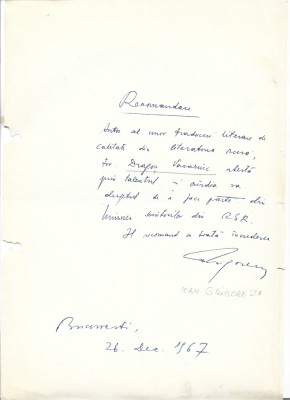 Recomandare
Autor al unor traduceri literare de
calitate din literatura rusă,
tov. Dragoș Vicol atestă
prin talentul și osîrdia sa
dreptul de a face parte din
Uniunea scriitorilor din RSR.
Il recomand cu toată încrederea
IOAN GRIGORESCU
București,
26. Dec. 1967